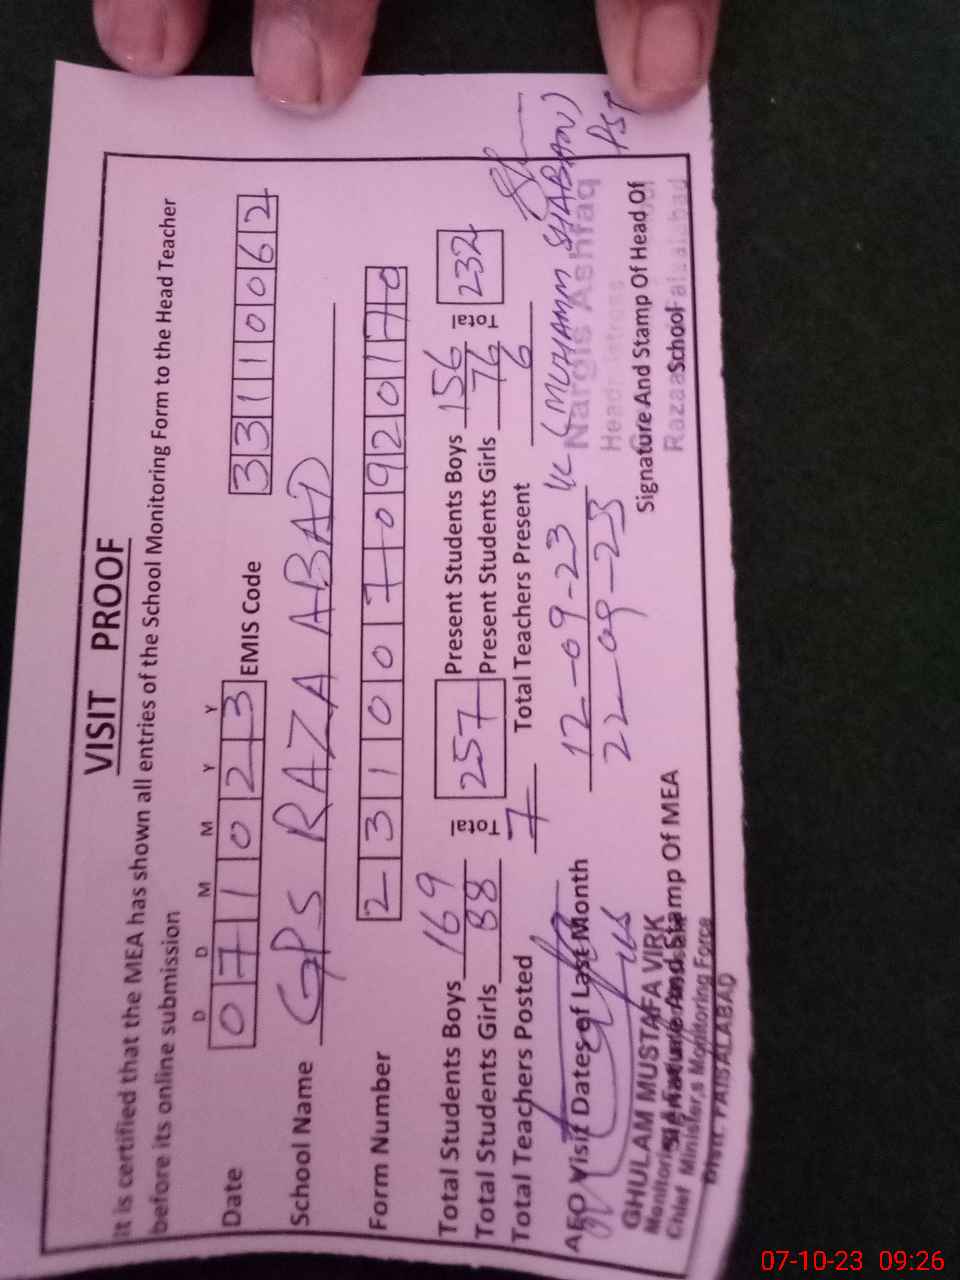 VISIT PROOF
It is certified that the MEA has shown all entries of the School Monitoring Form to the Head Teacher
before its online submission
D D M M Y Y
Date 0 7 1 0 2 3 EMIS Code 3 3 1 1 0 0 6 2
School Name GPS RAZA ABAD
Form Number 2 3 1 0 0 7 0 9 2 0 1 7 0
Total Students Boys 169 Total 257 Present Students Boys 156 Total 232
Total Students Girls 88 Present Students Girls 76
Total Teachers Posted 7 Total Teachers Present 6
AEO Visit Dates of Last Month 12-09-23 (MUHAMM SHABAN)
22-09-23 PST
Nargis Ashfaq
GHULAM MUSTAFA VIRK
Signature And Stamp Of MEA
Signature And Stamp Of Head Of
School
Chief Minister,s Monitoring Force
Distt. FAISALABAD
07-10-23 09:26